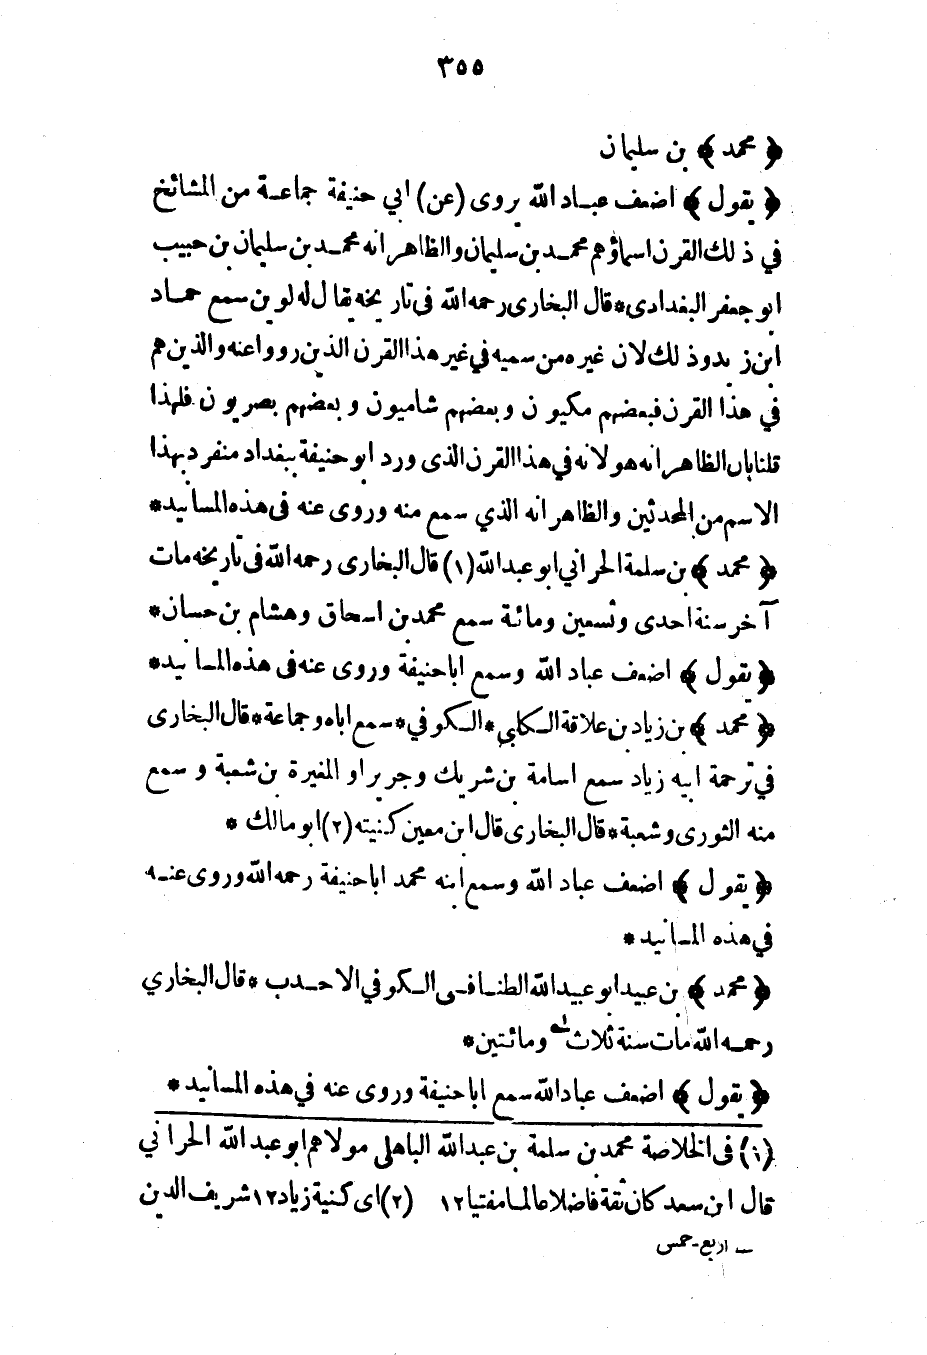 ٣٥٥
﴿ محمد ﴾ بن سليمان
﴿ يقول ﴾ اضعف عباد الله يروى (عن) ابي حنيفة جماعة من المشائخ
في ذلك القرن اسماؤهم محمد بن سليمان والظاهر انه محمد بن سليمان بن حبيب
ابو جعفر البغدادى * قال البخارى رحمه الله فى تاريخه يقال له لوين سمع حماد
ابن زيد وذلك لان غيره من سميه في غير هذا القرن الذين رووا عنه والذين هم
في هذا القرن فبعضهم مكيون وبعضهم شاميون وبعضهم بصريون فلهذا
قلنا بان الظاهر انه هو لانه في هذا القرن الذى ورد ابو حنيفة ببغداد منفرد بهذا
الاسم من المحدثين والظاهر انه الذي سمع منه وروى عنه فى هذه المسانيد *
﴿ محمد ﴾ بن سلمة الحراني ابو عبد الله (١) قال البخارى رحمه الله فى تاريخه مات
آخر سنة احدى وتسعين ومائة سمع محمد بن اسحاق وهشام بن حسان *
﴿ يقول ﴾ اضعف عباد الله وسمع اباحنيفة وروى عنه فى هذه المسانيد *
﴿ محمد ﴾ بن زياد بن علاقة الكلبي * الكوفي * سمع اباه وجماعة * قال البخارى
في ترجمة ابيه زياد سمع اسامة بن شريك وجريرا و المغيرة بن شعبة و سمع
منه الثورى وشعبة * قال البخارى قال ابن معين كنيته (٢) ابو مالك *
﴿ يقول ﴾ اضعف عباد الله وسمع ابنه محمد اباحنيفة رحمه الله وروى عنه
في هذه المسانيد *
﴿ محمد ﴾ بن عبيد ابو عبيد الله الطنافسى الكوفي الاحدب * قال البخاري
رحمه الله مات سنة ثلاث ومائتين *
﴿ يقول ﴾ اضعف عباد الله سمع اباحنيفة وروى عنه في هذه المسانيد *
(١) فى الخلاصة محمد بن سلمة بن عبد الله الباهلى مولاهم ابو عبد الله الحراني
قال ابن سعد كان ثقة فاضلا عالما مفتيا ١٢ (٢) اى كنية زياد ١٢ شريف الدين
ــ اربع - خمس